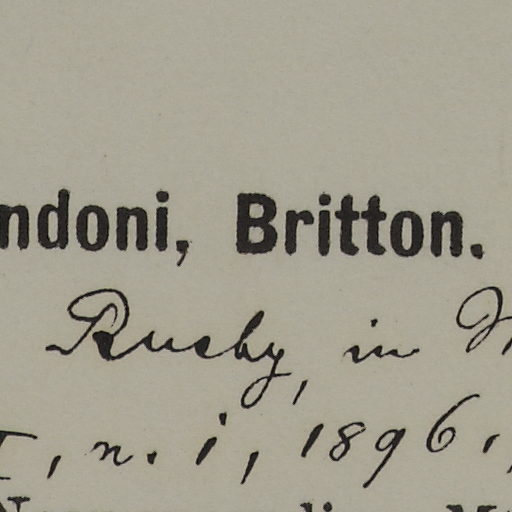 ndoni, Britton.
Rusby, in
, n. i, 1896.,